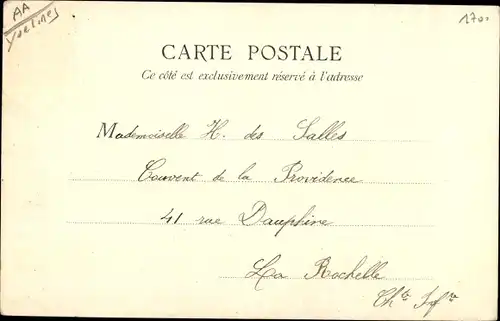 AA
Yvelines
1700
CARTE POSTALE
Ce côté est exclusivement réservé à l'adresse
Mademoiselle H. des Salles
Couvent de la Providence
41 rue Dauphine
La Rochelle
Chte Infre